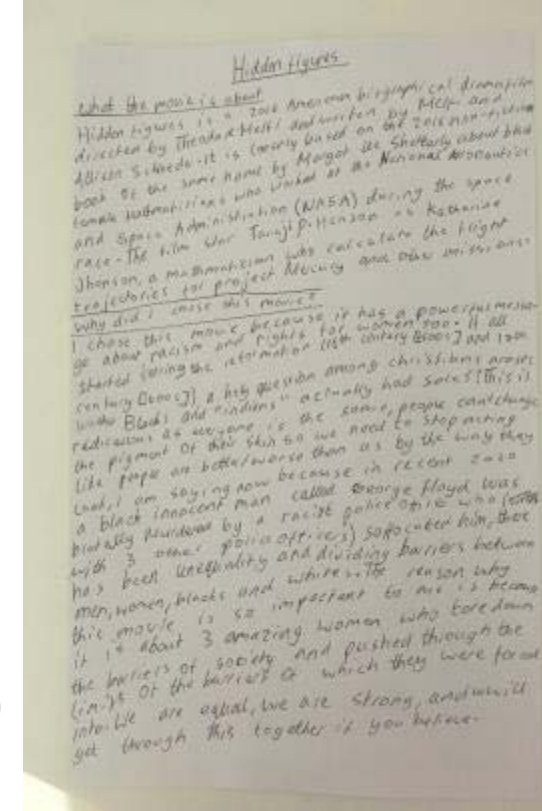 Hidden figures
what the movie is about
Hidden figures is a 2016 American biographical dramafilm
directed by Theodore Melfi and written by Melfi and
Allison Schroeder. It is loosely based on the 2016 non-fiction
book of the same name by Margot Lee Shetterly about black
female mathematicians who worked at the National Aeronautics
and Space Administration (NASA) during the space
race. The film star Taraji P. Henson as Katherine
Jhonson, a mathematician who calculate the flight
trajectories for project Mercury and other missions.
why did I chose this movie?
I chose this movie because it has a powerful
about racism and rights for women too. It all
started during the reformation (16th century and
century a big question among christians
Blacks and "indians" actually had souls [This is
as everyone is the same, people
the pigment of their skin so we need to stop acting
like people are better/worse than us by the way they
look, i am saying now because in recent 2020
a black innocent man called George floyd was
brutally murdered by a racist police who
with 3 other police officers) him,
has been and dividing barriers between
men, women, blacks and white. The reason why
this movie is so important to me is because
it is about 3 amazing women who tore down
the barriers of society and pushed through the
of the barriers of which they were forced
into. We are equal, we are strong, and will
get through this together if you believe.